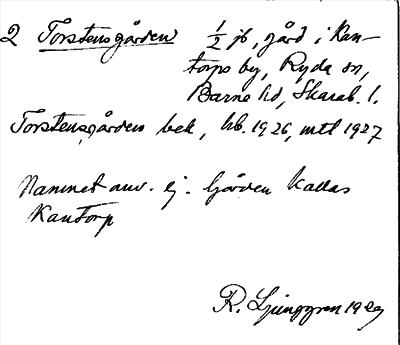 2 Torstensgården 1/2 jb, gård i Kan-
torps by, Ryda sn,
Barne hd, Skarab. l.
Torstensgårdens bek, hb. 1926, mtl 1927
Namnet anv. ej. Gården kallas
Kantorp
R. Ljunggren 1929